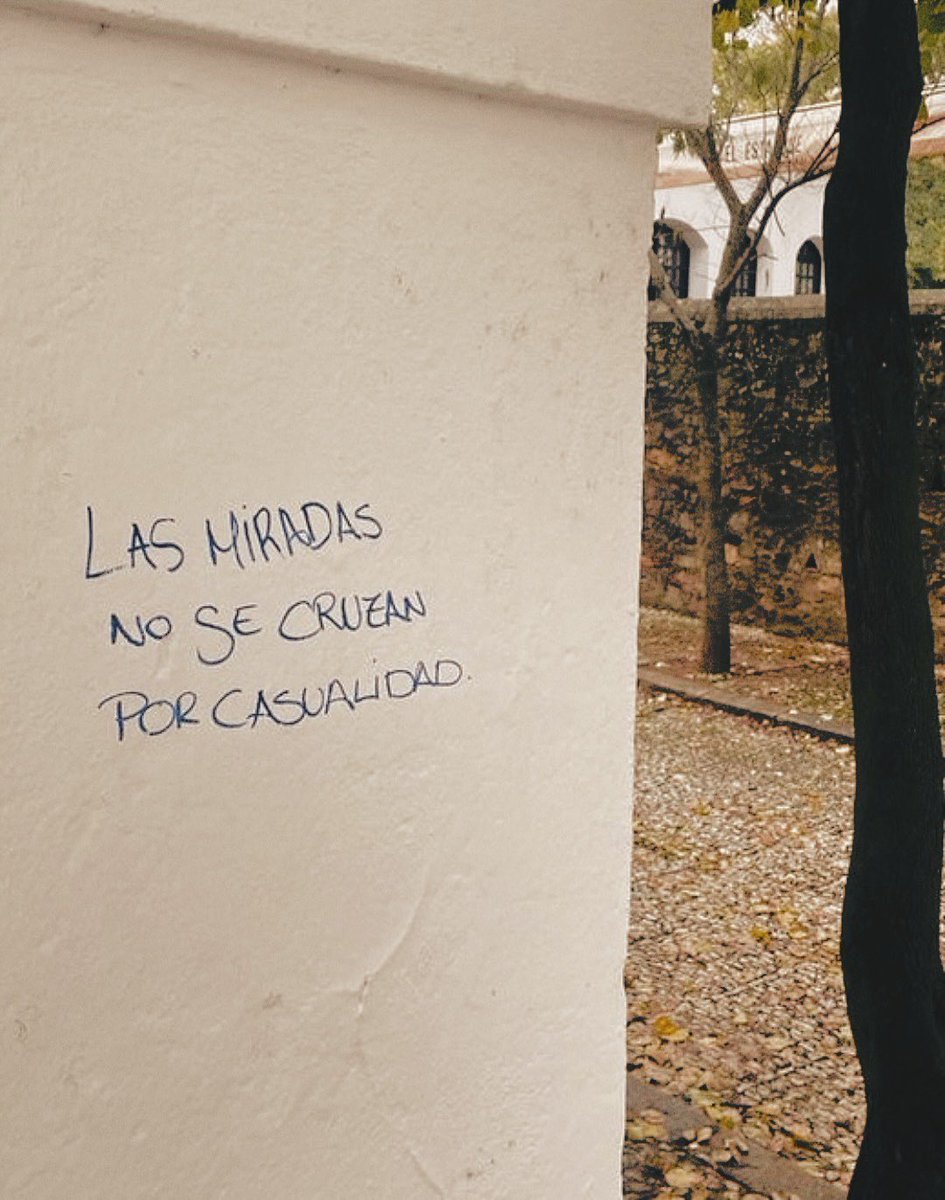 EL
LAS MIRADAS
NO SE CRUZAN
POR CASUALIDAD.